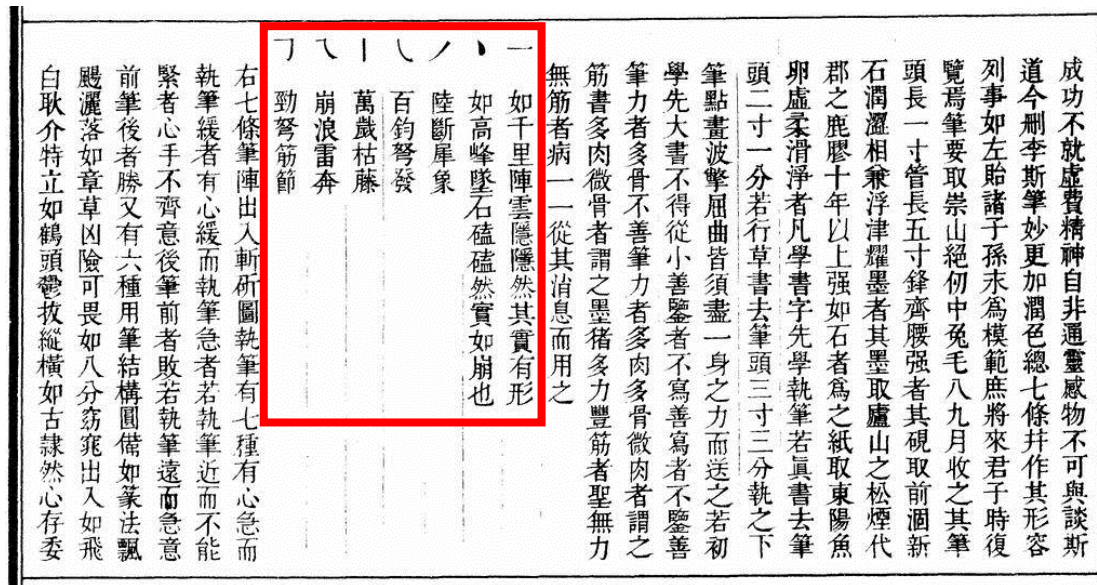 成功不就虛費精神自非通靈感物不可與談斯
道今刪李斯筆妙更加潤色總七條并作其形容
列事如左貽諸子孫末為模範庶將來君子時復
覽焉筆要取崇山絕仞中兔毛八九月收之其筆
頭長一寸管長五寸鋒齊腰强者其硯取前涸新
石潤澀相兼浮津耀墨者其墨取廬山之松煙代
郡之鹿膠十年以上强如石者為之紙取東陽魚
卵虛柔滑淨者凡學書字先學執筆若眞書去筆
頭二寸一分若行草書去筆頭三寸三分執之下
筆點畫波擎屈曲皆須盡一身之力而送之若初
學先大書不得從小善鑒者不寫善寫者不鑒善
筆力者多骨不善筆力者多肉多骨微肉者謂之
筋書多肉微骨者謂之墨猪多力豐筋者聖無力
無筋者病一一從其消息而用之
一 如千里陣雲隱隱然其實有形
丶 如高峰墜石磕磕然實如崩也
丿 陸斷犀象
㇂ 百鈞弩發
丨 萬歲枯藤
㇏ 崩浪雷奔
㇆ 勁弩筋節
右七條筆陣出入斬斫圖執筆有七種有心急而
執筆緩者有心緩而執筆急者若執筆近而不能
緊者心手不齊意後筆前者敗若執筆遠而急意
前筆後者勝又有六種用筆結構圓備如篆法飄
颺灑落如章草凶險可畏如八分窈窕出入如飛
白耿介特立如鶴頭鬱拔縱橫如古隸然心存委